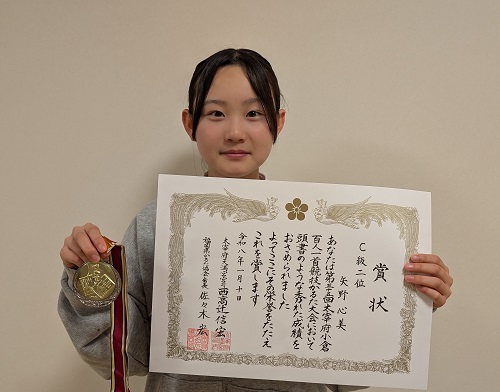 賞状
C級二位
矢野心美
あなたは第三十回太宰府小倉
百人一首競技かるた大会において
頭書のような秀れた成績を
おさめられました
よってここにその栄誉をたたえ
これを賞します
令和八年一月十日
太宰府天満宮宮司 西高辻信宏
福岡県かるた協会会長 佐々木宏